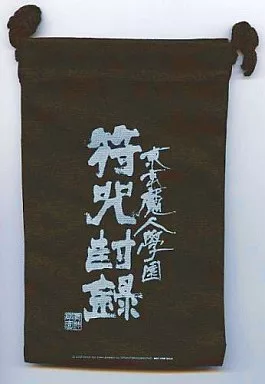 東京魔人學園
符咒封錄